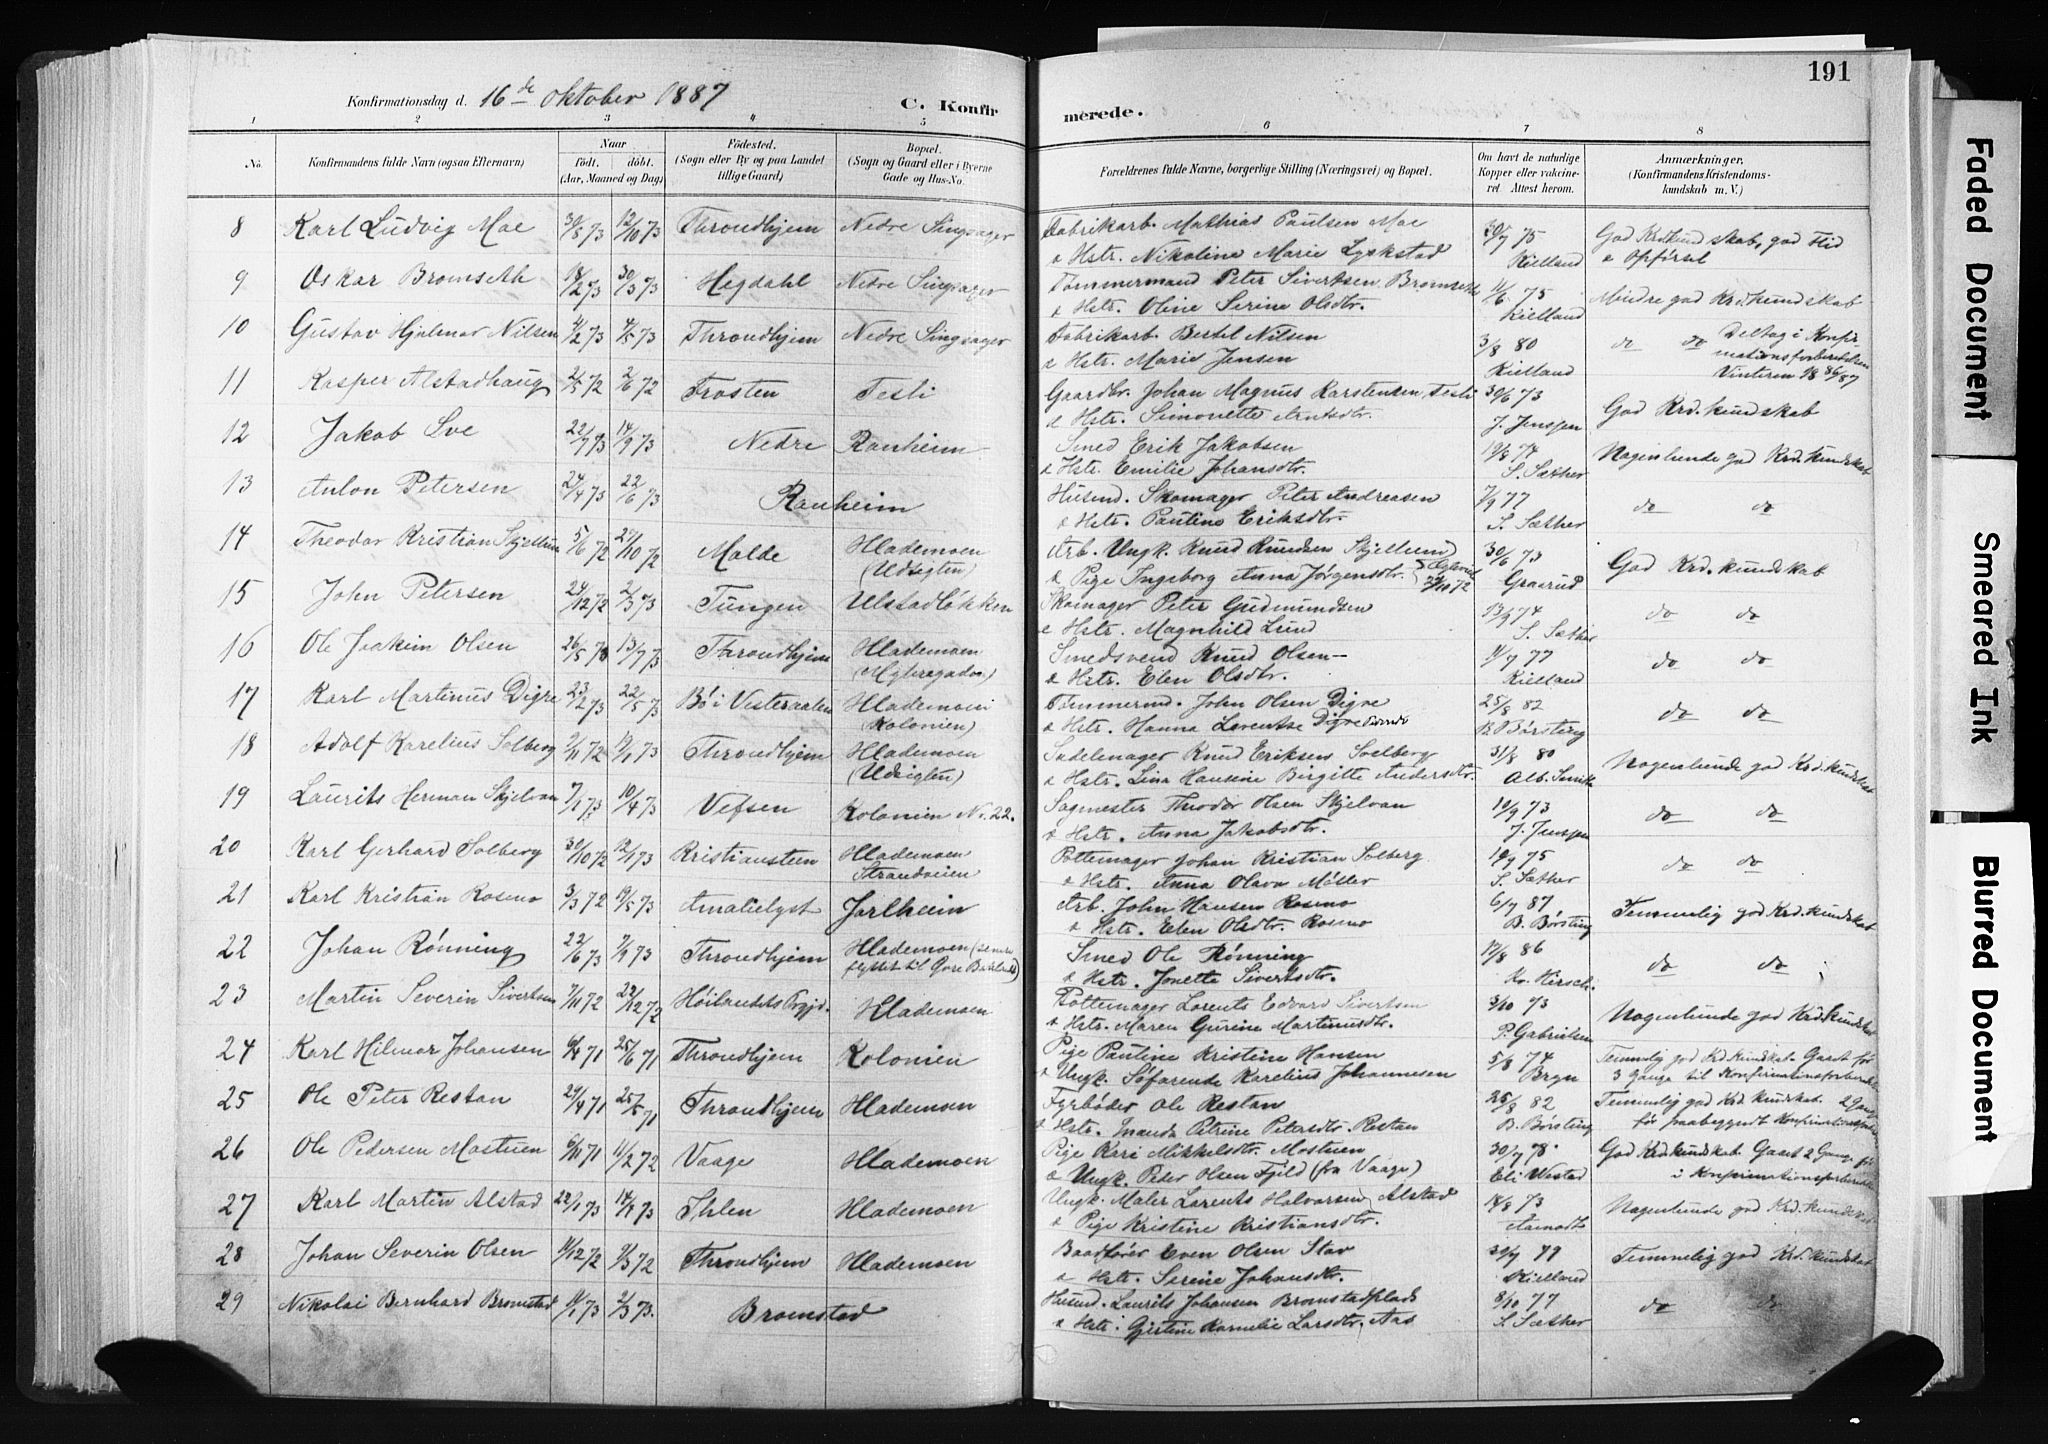 191
Konfirmationsdag d. 16de Oktober 1887 C. Konfirmerede.
1 2 3 4 5 6 7 8
No. Konfirmandens fulde Navn (ogsaa Efternavn) Naar født. døbt. (Aar, Maaned og Dag) Fødested. (Sogn eller By og paa Landet tillige Gaard) Bopæl. (Sogn og Gaard eller i Byerne Gade og Hus-No. Forældrenes fulde Navne, borgerlige Stilling (Næringsvei) og Bopæl. Om havt de naturlige Kopper eller vakcineret. Attest herom. Anmærkninger. (Konfirmandens Kristendomskundskab m. V.)
8 Karl Ludvig Moe 30/8 73 12/10 73 Throndhjem Nedre Singsager Fabrikarb. Mathias Paulsen Moe 20/7 75 God Krd.kundskab, god Flid
& Hstr. Nikoline Marie Lyskstad Kielland & Opførsel
9 Oskar Bromseth 18/2 73 30/3 73 Hegdahl Nedre Singsager Tømmermand Peter Sivertsen Bromseth 11/6 75 Mindre god Krd.kundskab
& Hstr. Oline Serine Olsdtr. Kielland
10 Gustav Hjalmar Nilsen 4/2 73 4/5 73 Throndhjem Nedre Singsager Fabrikarb. Bertel Nilsen 3/8 80 do do Deltog i Konfirmationsforberedelsen
& Hstr. Marie Jensen Kielland Vinteren 1886/87
11 Kasper Alstadhaug 2/5 72 2/6 72 Frosten Tesli Gaardbr. Johan Magnus Karstensen Tesli 30/6 73 God Krd.kundskab
& Hstr. Simonette Arntsdtr. J. Jenssen
12 Jakob Sve 22/7 73 14/9 73 Nedre Ranheim Smed Erik Jakobsen 19/8 74 Nogenlunde god Krd.kundskab
& Hstr. Emilie Johansdtr. S. Sæther
13 Anton Petersen 24/4 73 22/6 73 Ranheim Husmd. Skomager Peter Andreasen 7/9 77 do do
& Hstr. Pauline Eriksdtr. S. Sæther
14 Theodor Kristian Skjellum 5/6 72 27/10 72 Molde Hlademoen Arb. Ungk. Knud Knudsen Skjellund 30/6 73 God Krd.kundskab
(Udsigten) & Pige Ingeborg Anna Jørgensdtr. 29/10 72 Graarud
15 John Petersen 24/12 72 2/3 73 Tungen Ulstadløkken Skomager Peter Gudmundsen 13/9 74 do do
& Hstr. Magnhild Lund S. Sæther
16 Ole Joakim Olsen 26/5 73 13/7 73 Throndhjem Hlademoen Smedsvend Knud Olsen 4/7 77 do do
& Hstr. Elen Olsdtr. Kielland
17 Karl Martinus Digre 23/2 73 22/5 73 Bø i Vesteraalen Hlademoen Tømmermd. John Olsen Digre 25/8 82 do do
(Kolonien) & Hstr. Hanna Lorentse Digre B. Børsting
18 Adolf Karelius Solberg 2/11 72 19/1 73 Throndhjem Hlademoen Sadelmager Knud Eriksen Soelberg 31/8 80 Nogenlunde god Krd.kundskab
(Udsigten) & Hstr. Lina Hansine Birgitte Andersdtr. Alb. Smith
19 Laurits Herman Skjelvan 7/1 73 10/4 73 Vefsen Kolonien No. 22. Sagmester Theodor Olsen Skjelvan 10/9 73 do do
& Hstr. Anna Jakobsdtr. J. Jenssen
20 Karl Gerhard Solberg 30/10 72 12/1 73 Kristiansteen Hlademoen Pottemager Johan Kristian Solberg 10/9 75 do do
Strandveien & Hstr. Anna Olava Møller S. Sæther
21 Karl Kristian Rosmo 3/3 72 19/5 73 Amalielyst Jarlheim Arb. John Hansen Rosmo 6/7 87 Temmelig god Krd.kundskab
& Hstr. Elen Olsdtr. Rosmo B. Børsting
22 Johan Rønning 22/6 73 7/9 73 Throndhjem Hlademoen (senere Smed Ole Rønning 17/8 86 do do
flyttet til Øvre Baklandet) & Hstr. Jonetta Sivertsdtr. Kr. Hirsch.
23 Martin Severin Sivertsen 7/11 72 22/12 72 Høilandets Prgjd. Hlademoen Pottemager Lorents Edvard Sivertsen 3/10 73 Nogenlunde god Krd.kundskab
& Hstr. Maren Gurine Martinusdtr. P. Gabrielsen
24 Karl Hilmar Johansen 6/4 71 25/6 71 Throndhjem Kolonien Pige Pauline Kristine Hansen 5/8 74 Temmelig god Krd.kundskab. Gaaet før
& Ungk. Søfarende Karelius Johannesen Bryn 3 Gange til Konfirmationsforberedelse
25 Ole Peter Restan 29/4 71 25/5 71 Throndhjem Hlademoen Fyrbøder Ole Restan 25/8 82 Temmelig god Krd.kundskab. 2 Gange
& Hstr. Inanda Petrine Petersdtr. Restan B. Børsting før paabegyndt Konfirmationsforb.
26 Ole Pedersen Mostuen 6/11 71 11/2 72 Vaage Hlademoen Pige Kari Mikkelsdtr. Mostuen 30/7 78. God Krd.kundskab. Gaaet 2 Gange før
& Ungk. Peder Olsen Fjeld (fra Vaage) Eli Westad i Konfirmationsforberedelse
27 Karl Martin Alstad 22/1 73 14/4 73 Ihlen Hlademoen Ungk. Maler Lorents Halvorsen Alstad 14/8 73 Nogenlunde god Krd.kundskab
& Pige Kristine Kristiansdtr. Aarnodt
28 Johan Severin Olsen 4/12 72 9/3 72 Throndhjem Hlademoen Baadfører Even Olsen Stav 30/7 79 Temmelig god Krd.kundskab
& Hstr. Serine Johansdtr. Kielland
29 Nikolai Bernhard Bromstad 11/1 73 2/3 73. Bromstad Husmd. Laurits Johansen Bromstadplads 8/10 77 do do
& Hstr. Gjertine Kornelie Larsdtr. Aas S. Sæther
Faded Document
Smeared Ink
Blurred Document